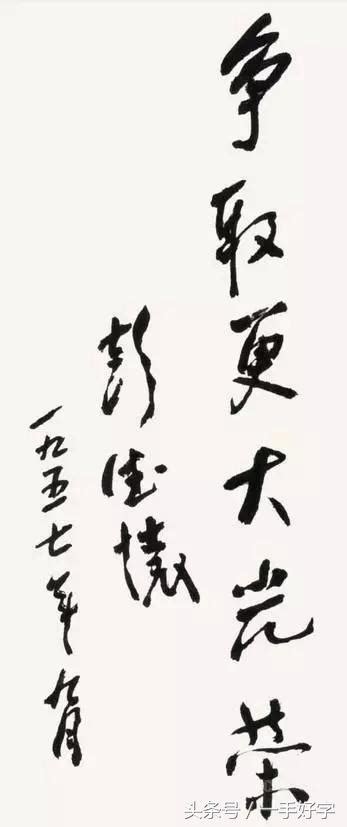 争取更大光荣
彭德怀
一九五七年九月
头条号/一手好字